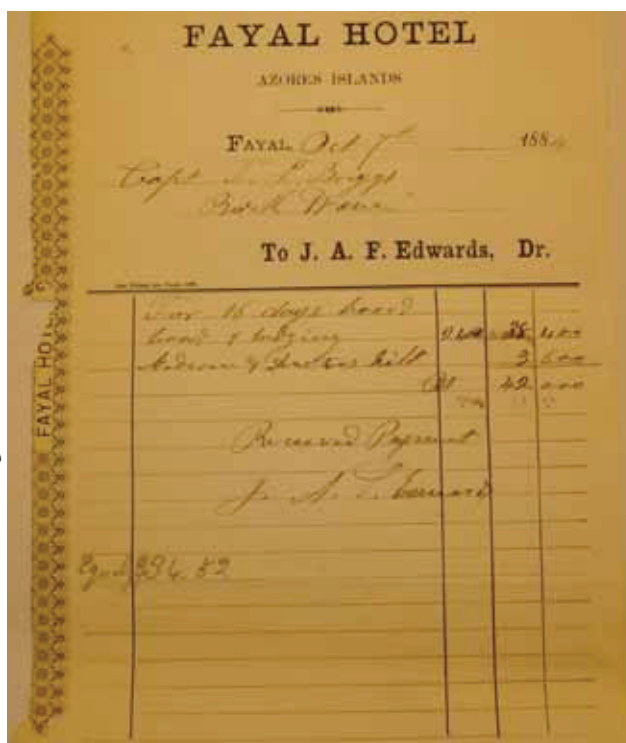 FAYAL HOTEL
AZORES ISLANDS
FAYAL, Oct 7th 1884
Capt L. Briggs
Bark
To J. A. F. Edwards, Dr.
For 16 days board
board & lodging 2.400 38 400
Medicine & Doctors bill 3 600
42 000
Received Payment
J. A.
Equal $34.52
FAYAL HOTEL